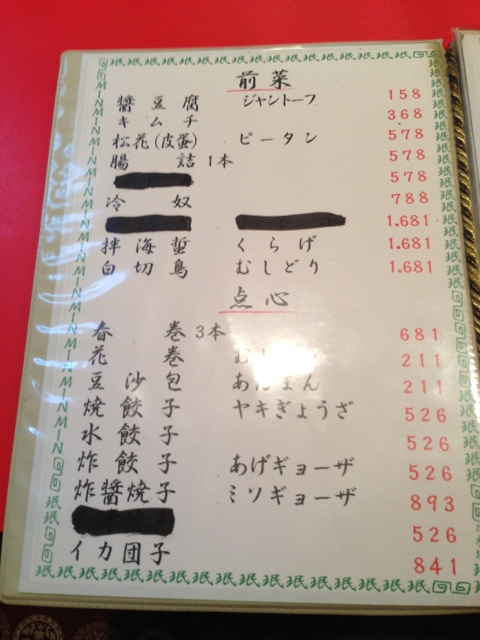 前菜
醬豆腐 ジャントーフ 158
キムチ 368
松花(皮蛋) ピータン 578
腸詰 1本 578
578
冷奴 788
1.681
拌海蜇 くらげ 1.681
白切鳥 むしどり 1.681
点心
春巻 3本 681
花巻 211
豆沙包 あんまん 211
焼餃子 ヤキぎょうざ 526
水餃子 526
炸餃子 あげギョーザ 526
炸醬焼子 ミソギョーザ 893
526
イカ団子 841